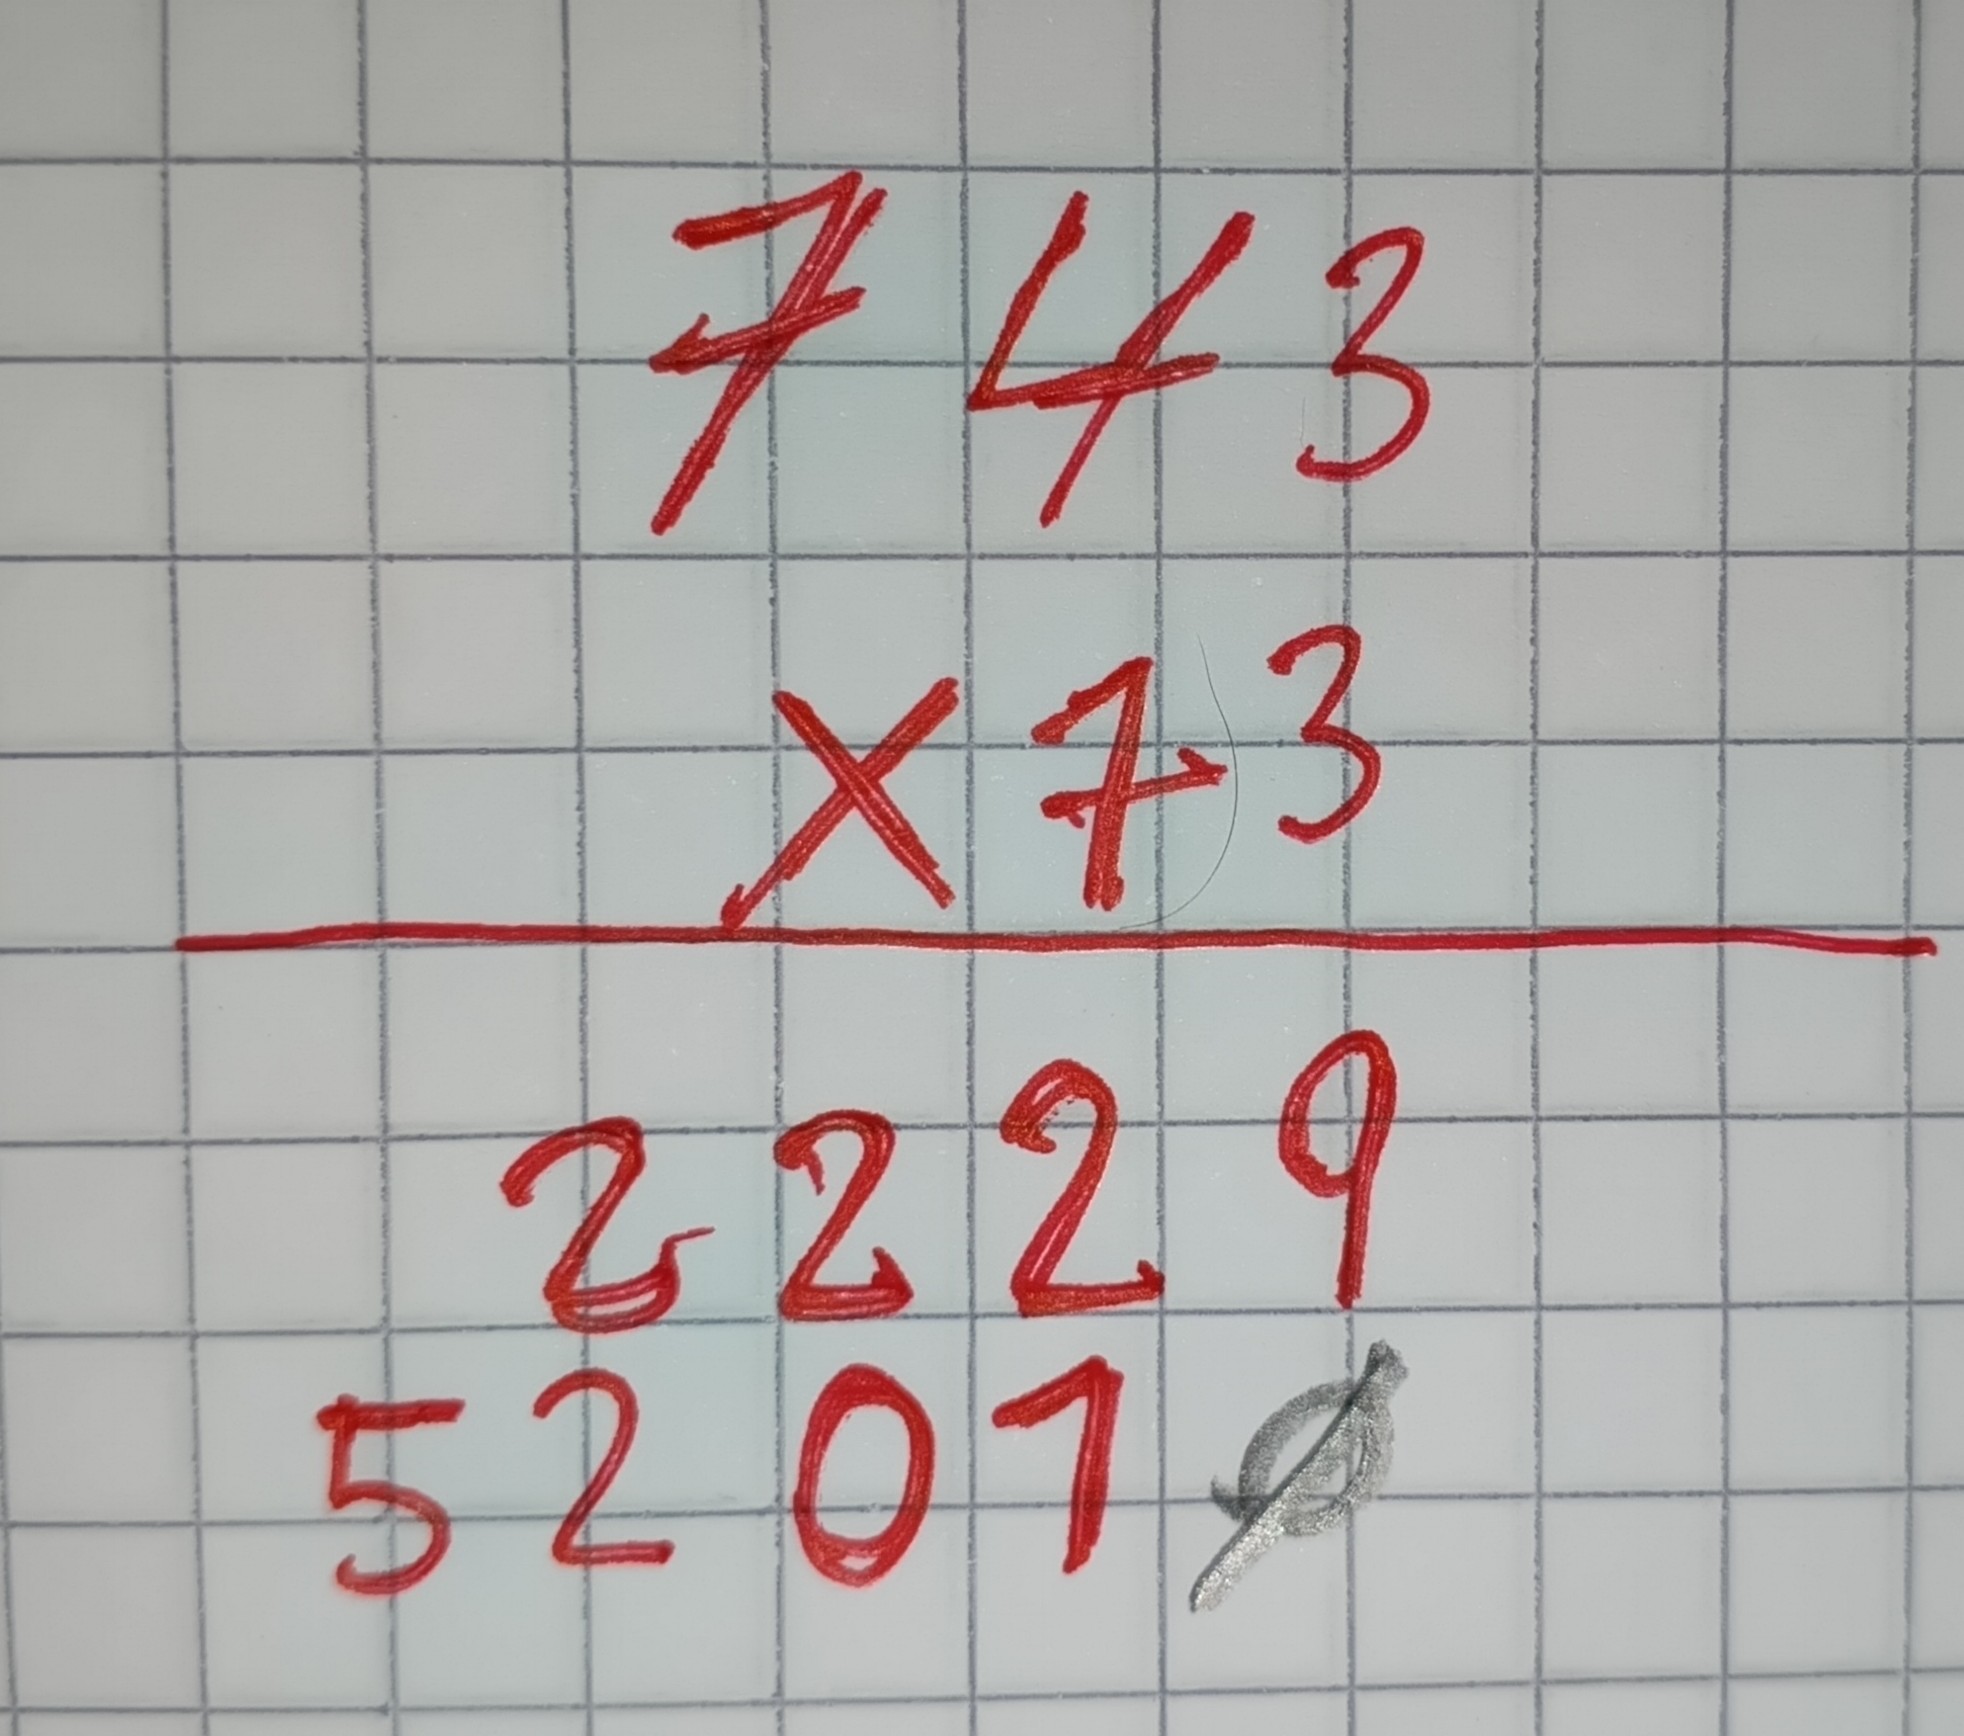 743
×73
2229
52010